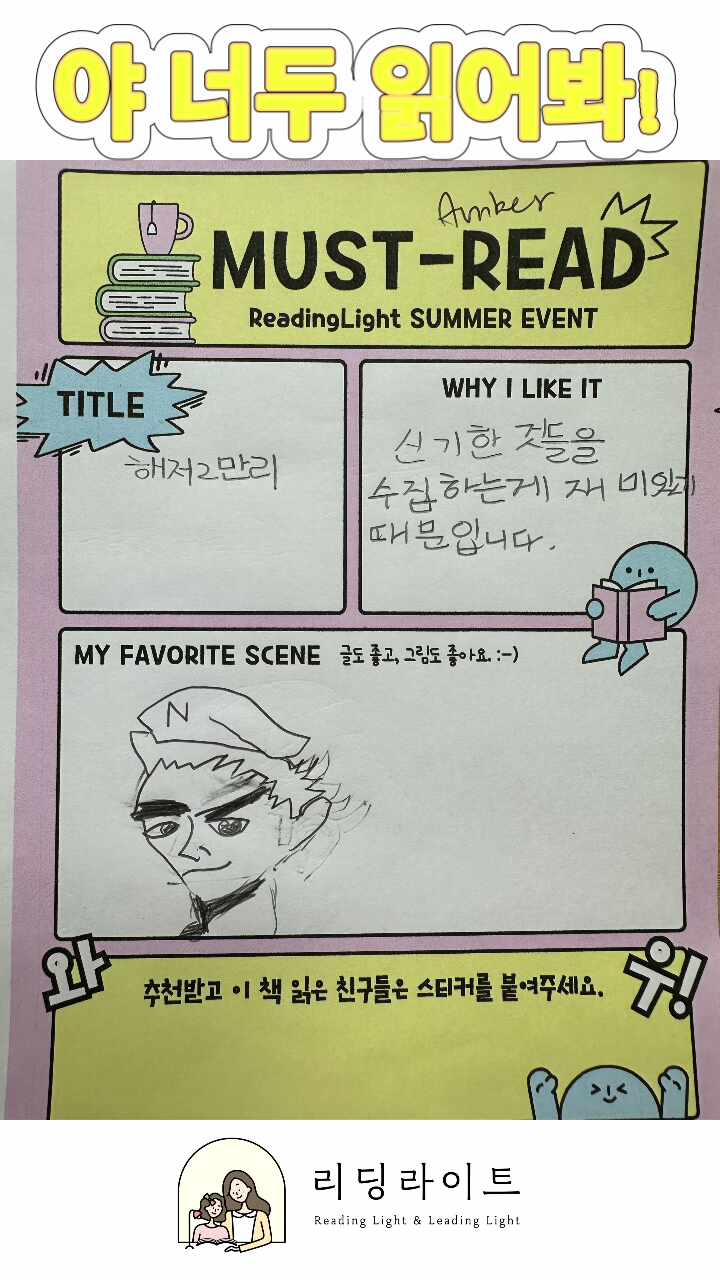 야 너두 읽어봐!
Amber
MUST-READ
ReadingLight SUMMER EVENT
TITLE
해저2만리
WHY I LIKE IT
신기한 것들을
수집하는게 재미있기
때문입니다.
MY FAVORITE SCENE 글도 좋고, 그림도 좋아요. :-)
N
와
우!
추천받고 이 책 읽은 친구들은 스티커를 붙여주세요.
리딩라이트
Reading Light & Leading Light